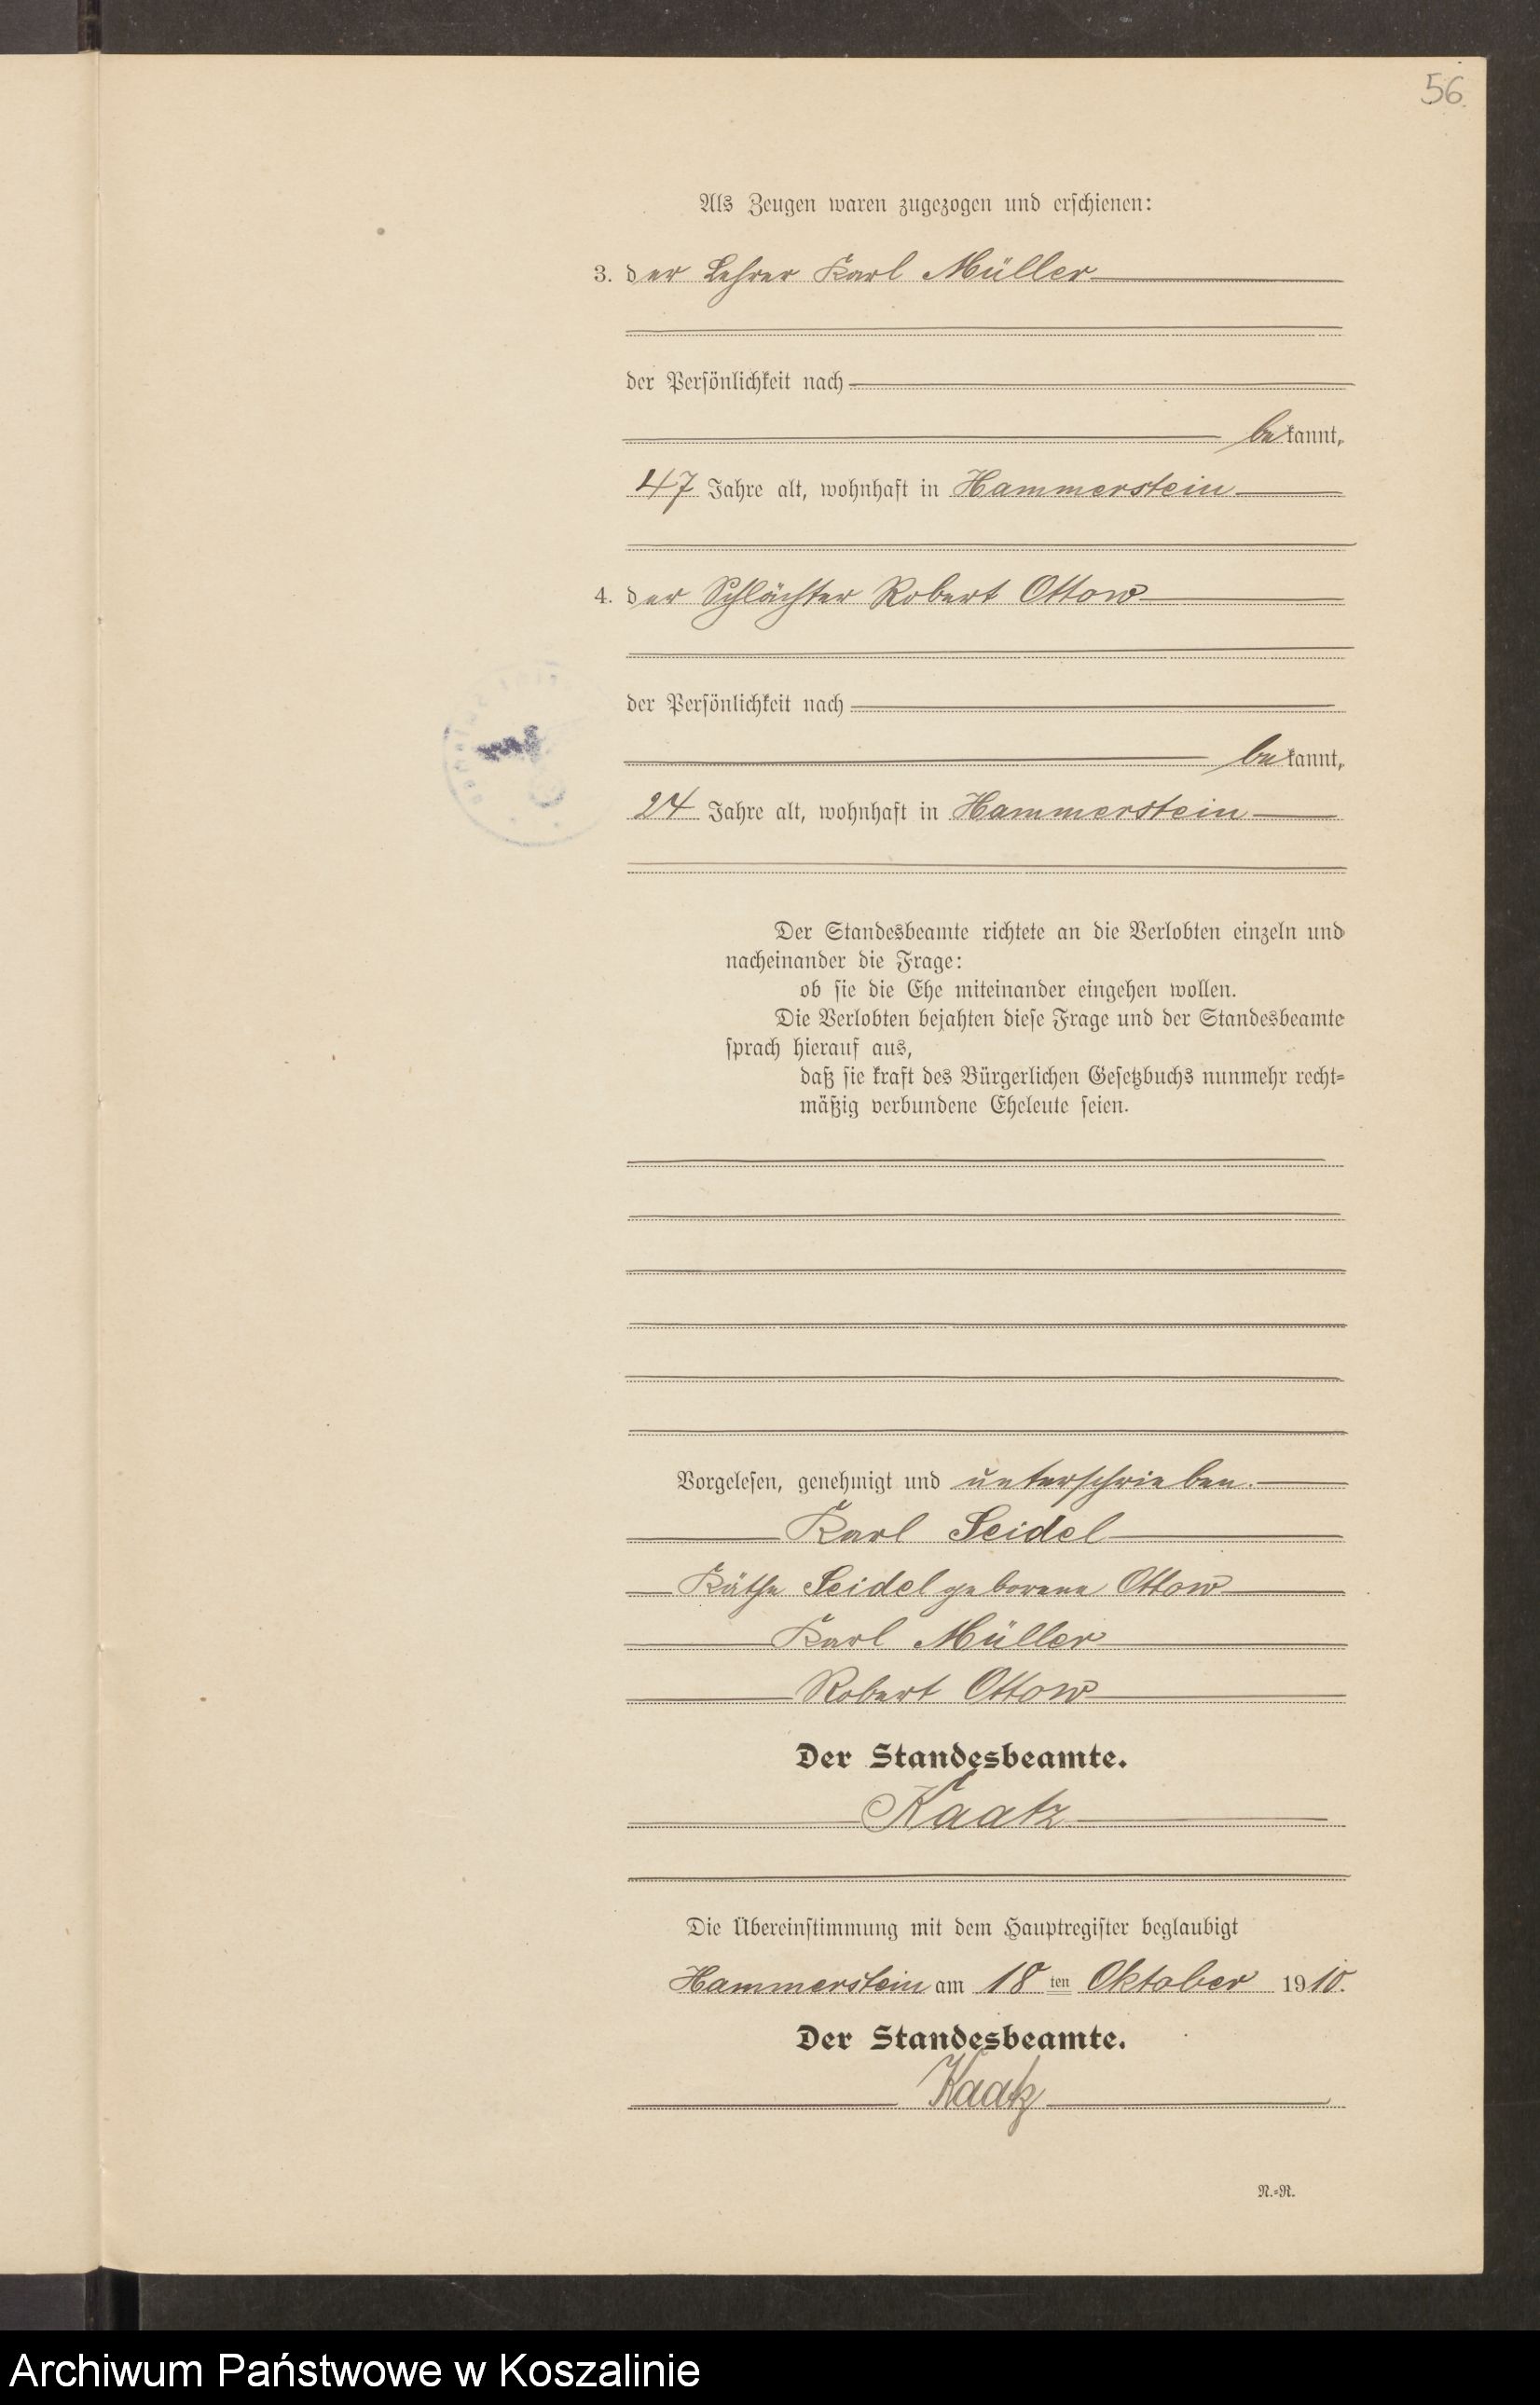 56.
Als Zeugen waren zugezogen und erschienen:
3. der Lehrer Karl Müller
der Persönlichkeit nach
bekannt,
47 Jahre alt, wohnhaft in Hammerstein
4. der Schlächter Robert Ottow
der Persönlichkeit nach
bekannt,
24 Jahre alt, wohnhaft in Hammerstein
Der Standesbeamte richtete an die Verlobten einzeln und
nacheinander die Frage:
ob sie die Ehe miteinander eingehen wollen.
Die Verlobten bejahten diese Frage und der Standesbeamte
sprach hierauf aus,
daß sie kraft des Bürgerlichen Gesetzbuchs nunmehr recht=
mäßig verbundene Eheleute seien.
Vorgelesen, genehmigt und unterschrieben.
Karl Seidel
Käthe Seidel geborene Ottow
Karl Müller
Robert Ottow
Der Standesbeamte.
Kaatz
Die Übereinstimmung mit dem Hauptregister beglaubigt
Hammerstein am 18 ten Oktober 1910.
Der Standesbeamte.
Kaatz
N.=R.
Archiwum Państwowe w Koszalinie